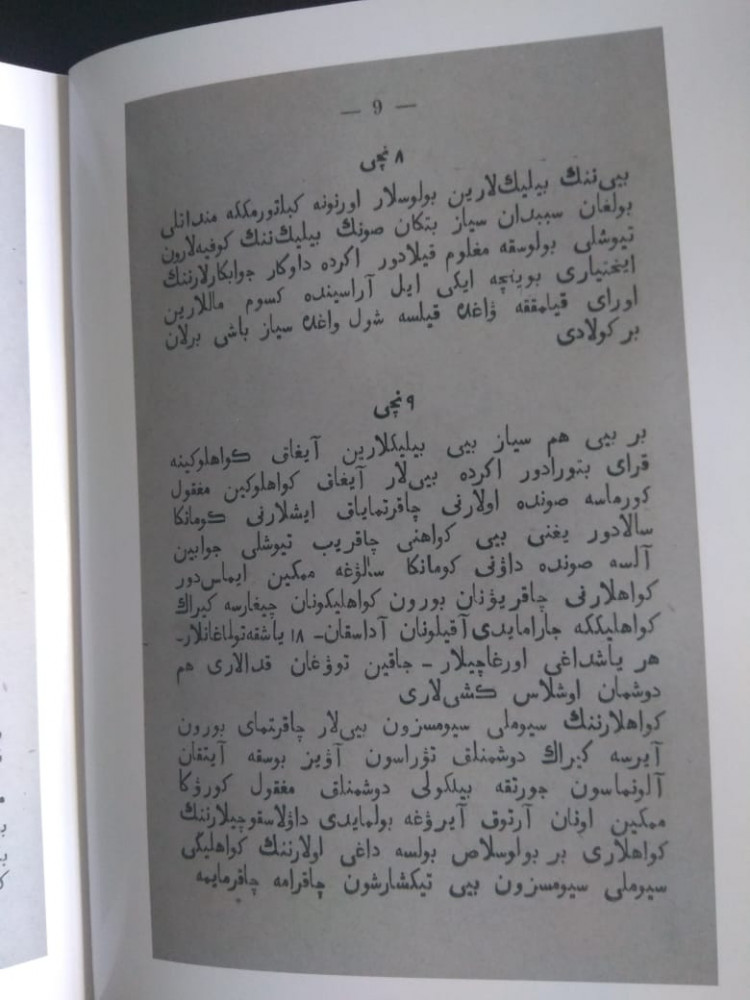 — 9 —
۸ نچی
بیی ننك بیلیك لارین بولوسلار اورنونه کیلتورمککه مندانلی
بولغان سببدان سیاز بتکان صونك بیلیك ننك کوفیه لارون
تیوشلی بولوسقه مغلوم قیلادور اکرده داوکار جوابکارلارننك
ایختیاری بوینچه ایکی ایل آراسینده کسوم ماللارین
اورای قیلمققه ۋاغدە قیلسه شول واغدە سیاز باشی برلان
بر کولادی
۹ نچی
بر بیی هم سیاز بیی بیلیکلارین آیغاق کواهلوکینه
قرای بتورادور اکرده بیی لار آیغاق کواهلوکین مغقول
کورماسه صونده اولارنی چاقرتمایاق ایشلارنی کومانکا
سالادور یغنی بیی کواهنی چاقریب تیوشلی جوابین
آلسه صونده داۋنی کومانکا سالۋغه ممکین ایماس دور
کواهلارنی چاقریۋنان بورون کواهلیکونان چیغارسه کیراك
کواهلیککه جارامایدی آقیلونان آداسقان- ۱۸ یاشقه تولماغانلار-
هر یاشداغی اورغاچیلار - جاقین توۋغان قدالاری هم
دوشمان اوشلاس کشی لاری
کواهلارننك سیوملی سیومسزون بیی لار چاقرتمای بورون
آیرسه کیراك دوشمنلق تۋراسون آۋیز بوسقه آیتقان
آلونماسون جورتقه بیلکولی دوشمنلق مغقول کورۋکا
ممکین اونان آرتوق آیرۋغه بولمایدی داۋلاسقوچیلارننك
کواهلاری بر بولوسلاص بولسه داغی اولارننك کواهلیگی
سیوملی سیومسزون بیی تیکشارشون چاقرامه چاقرمایمه